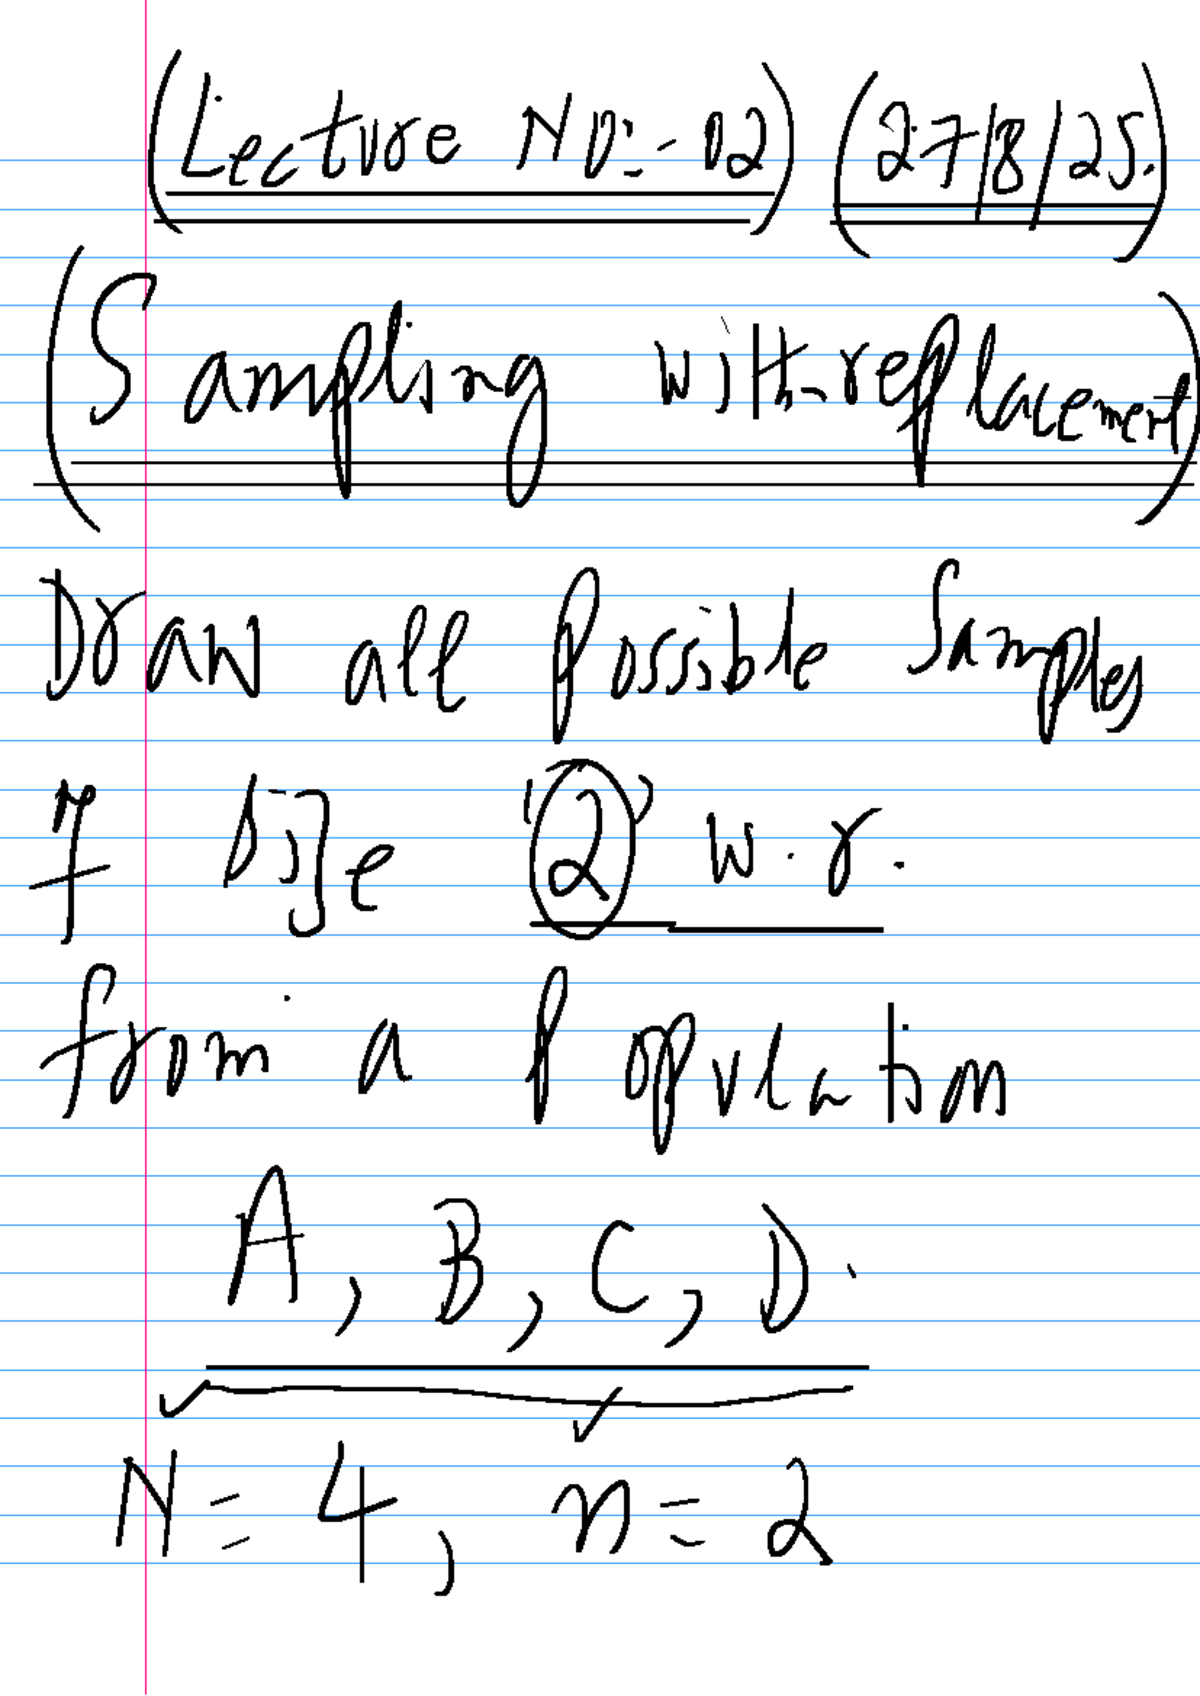 (Lecture No:- 02) (27/8/25.)
(Sampling with-replacement)
Draw all Possible Samples
of size "2" w.r.
from a Population
A, B, C, D.
N = 4, n = 2